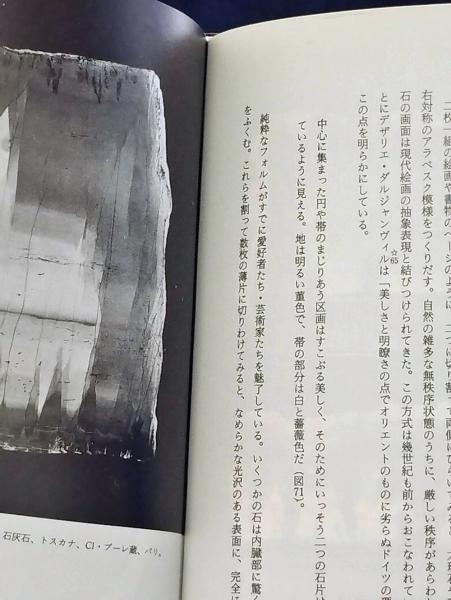 二枚一組の絵画や書物のページのように、二つに切り割って両側にひらいてみると、
右対称のアラベスク模様をつくりだす。自然の雑多な無秩序状態のうちに、厳しい秩序があらわ
石の画面は現代絵画の抽象表現と結びつけられてきた。この方式は幾世紀も前からおこなわれてい
とにデザリエ・ダルジャンヴィルは「美しさと明瞭さの点でオリエントのものに劣らぬドイツの
☆65
この点を明らかにしている。
中心に集まった円や帯のまじりあう区画はすこぶる美しく、そのためにいっそう二つの石片は
ているように見える。地は明るい菫色で、帯の部分は白と薔薇色だ（図71）。
純粋なフォルムがすでに愛好者たち・芸術家たちを魅了している。いくつかの石は内臓部に驚く
をふくむ。これらを割って数枚の薄片に切りわけてみると、なめらかな光沢のある表面に、完全に
石灰石、トスカナ、Cl・ブーレ蔵、パリ。